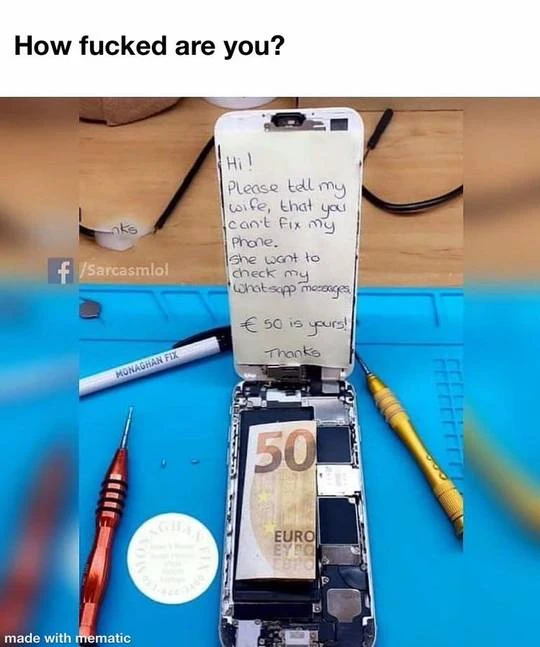 How fucked are you?
Hi!
Please tell my
wife, that you
can't fix my
Phone.
She want to
check my
Whatsapp messages.
€ 50 is yours!
Thanks
nks
f /Sarcasmlol
MONAGHAN FIX
50
EURO
ΕΥΡΩ
ЕВРО
MONAGHAN FIX
made with mematic